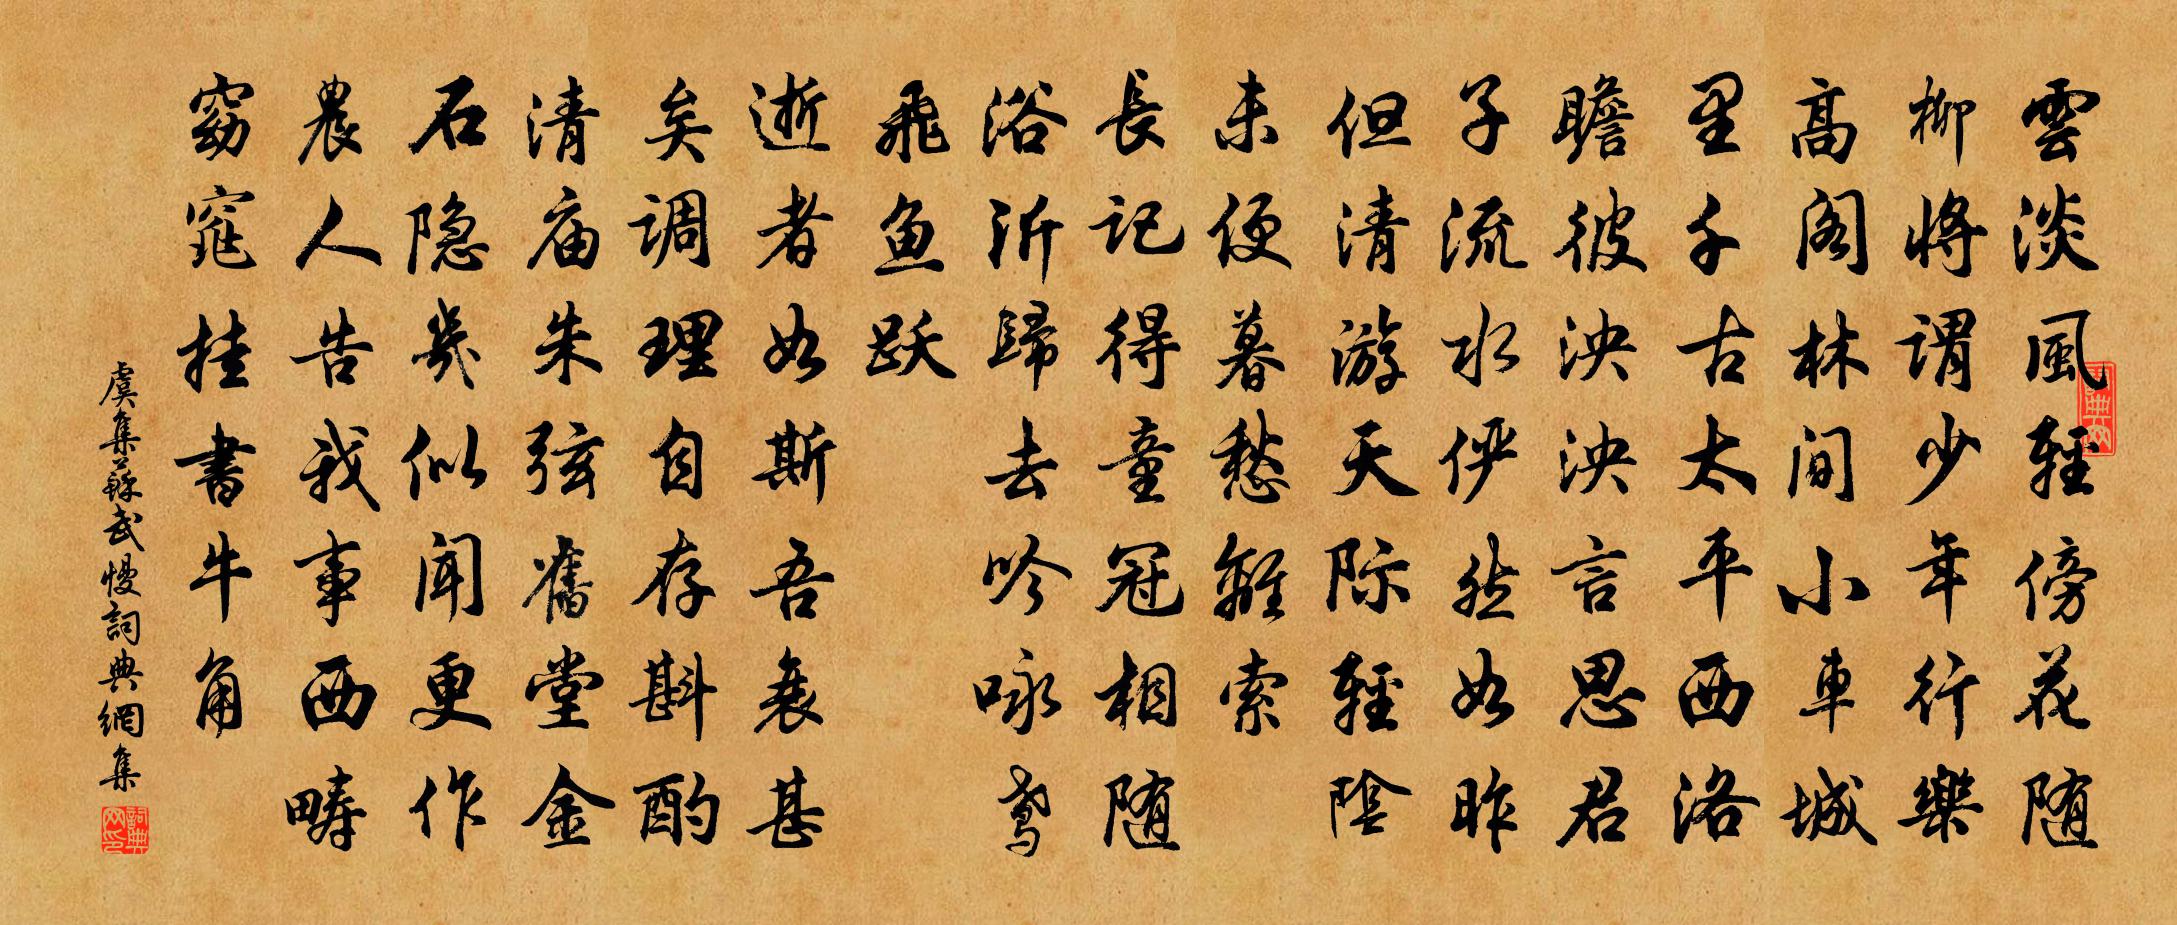 雲淡風輕傍花随
柳將謂少年行樂
高阁林间小車城
里千古太平西洛
瞻彼泱泱言思君
子流水俨然如昨
但清游天际輕陰
未便暮愁離索
長記得童冠相随
浴沂歸去吟咏鸢
飛鱼跃
逝者如斯吾衰甚
矣调理自存斟酌
清庙朱弦舊堂金
石隐幾似闻更作
農人告我事西畴
窈窕挂書牛角
虞集蘇武慢詞典網集
詞典网印